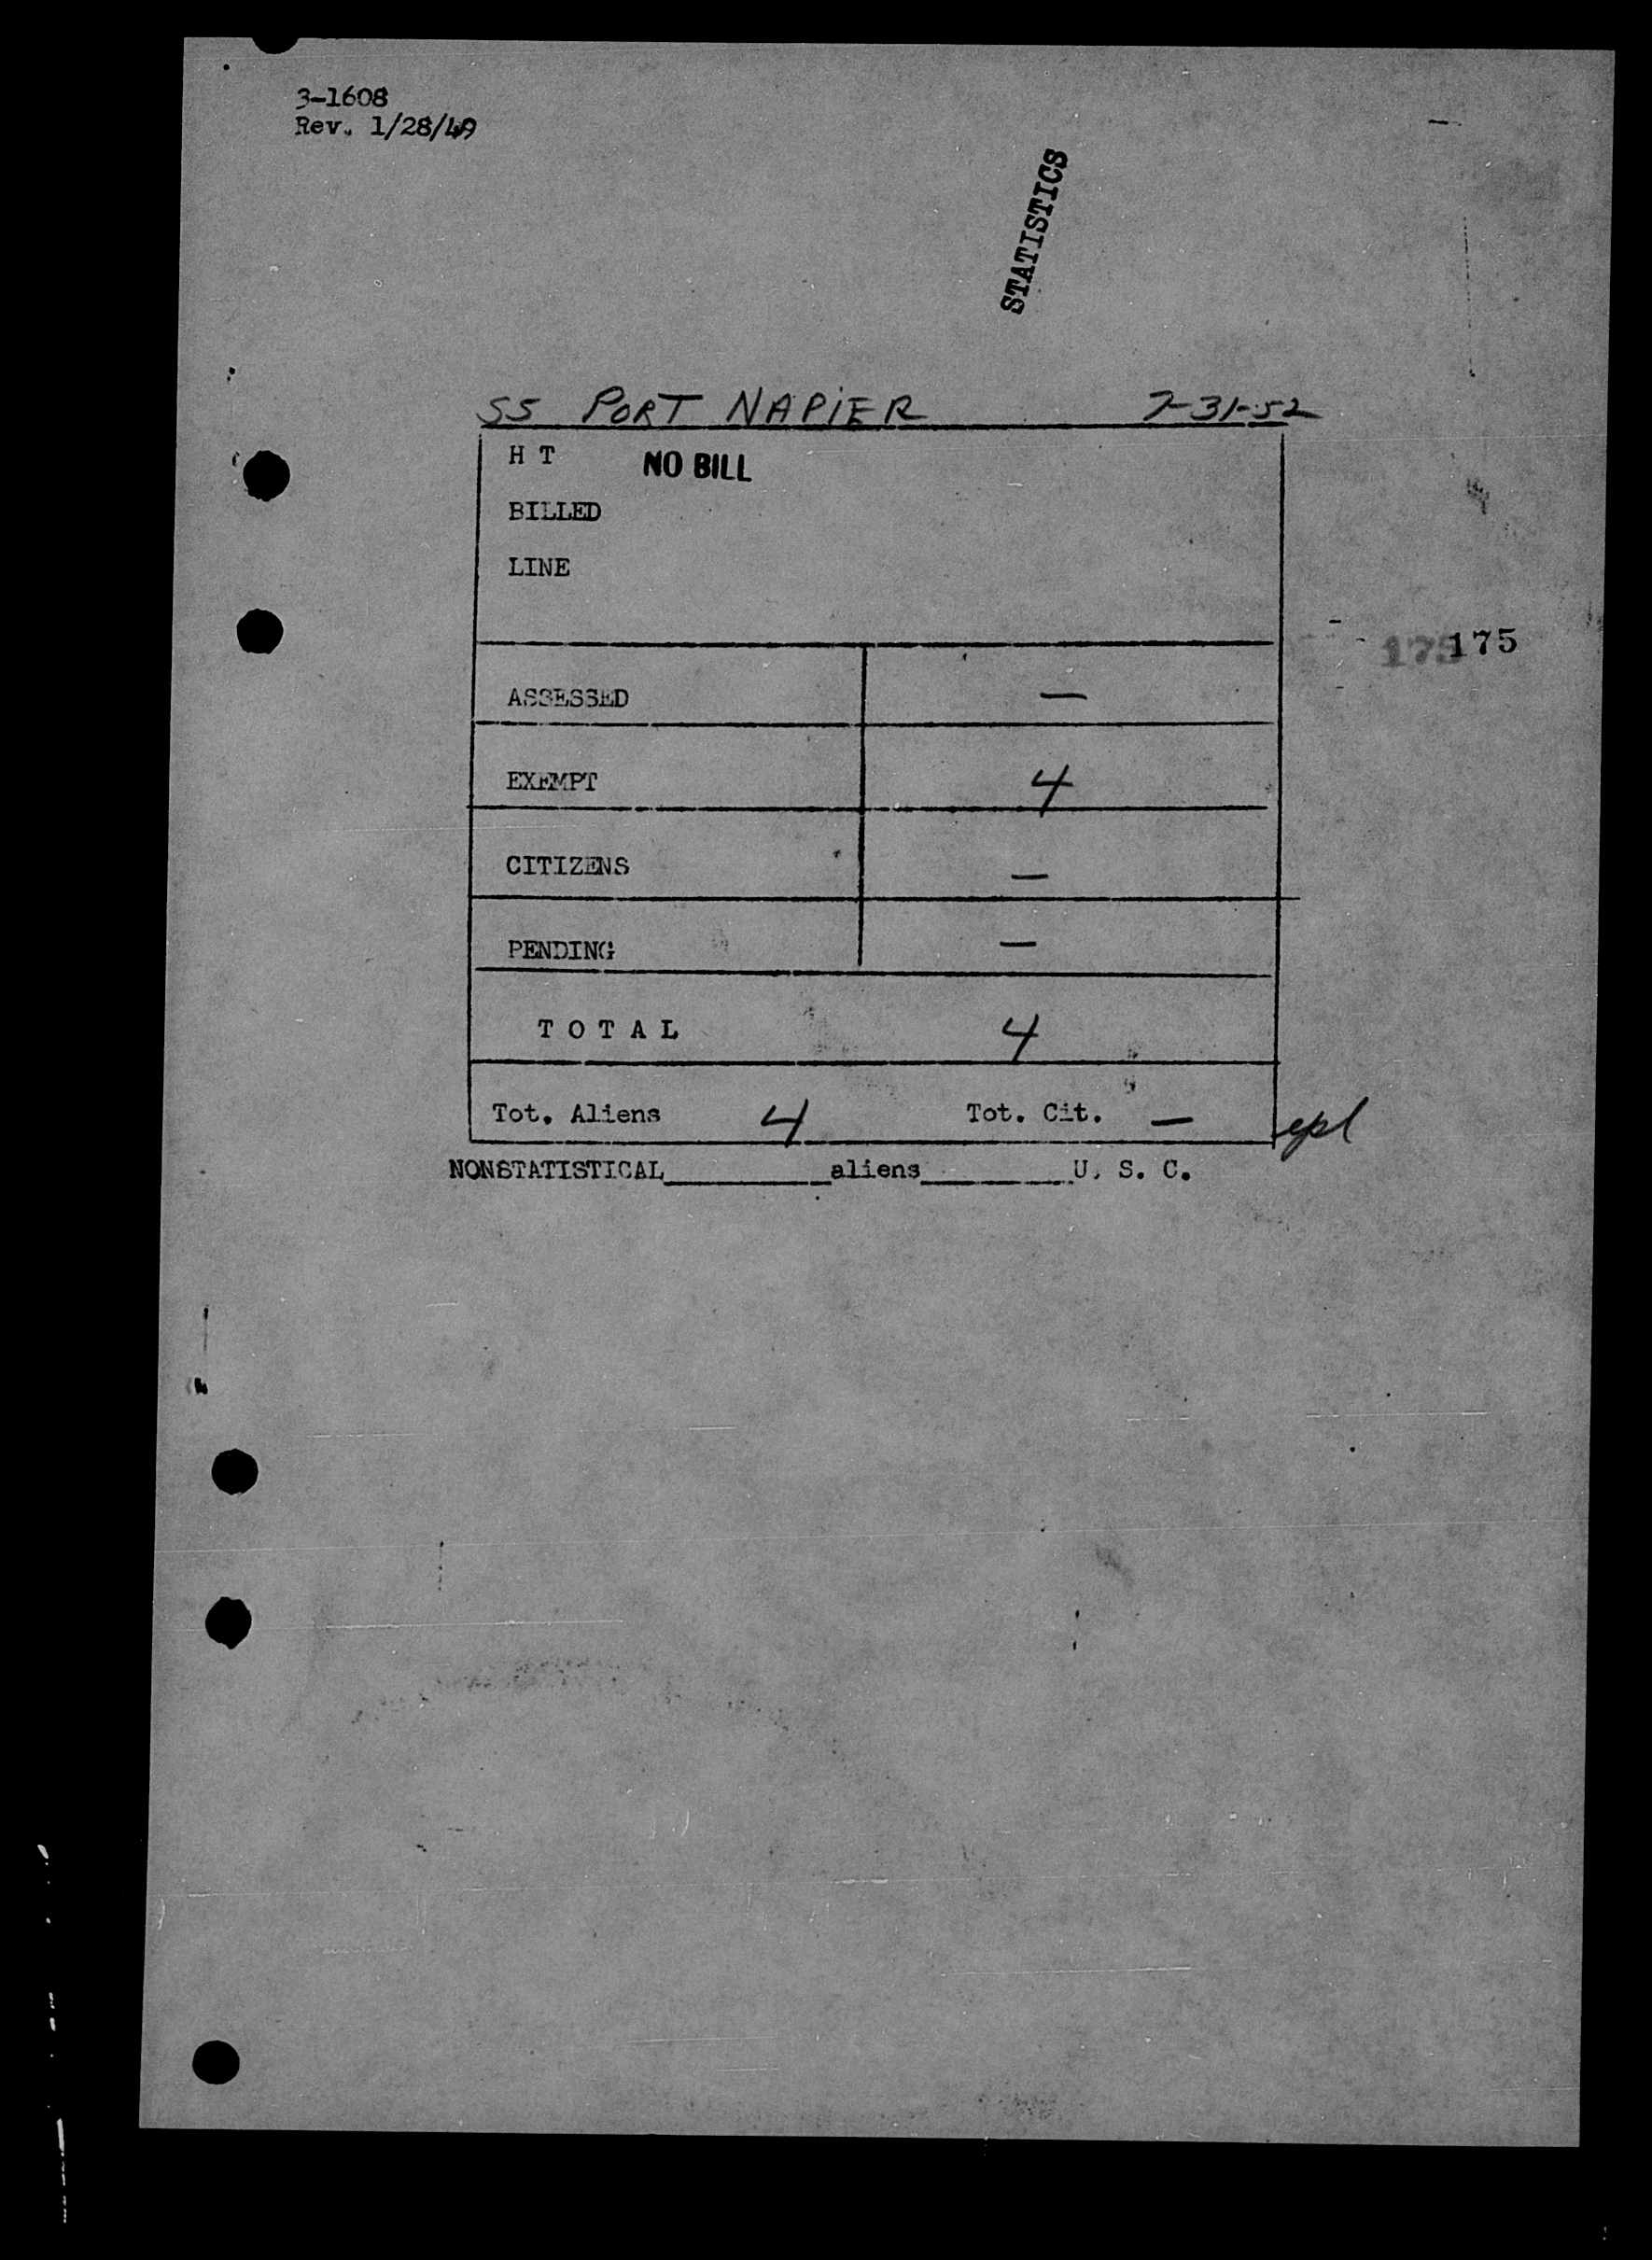 3-1608
Rev. 1/28/49
STATISTICS
SS PORT NAPIER 7-31-52
H T NO BILL
BILLED
LINE
175 175
ASSESSED —
EXEMPT 4
CITIZENS —
PENDING —
T O T A L 4
Tot. Aliens 4 Tot. Cit. — epl
NONSTATISTICAL__________aliens_________U. S. C.